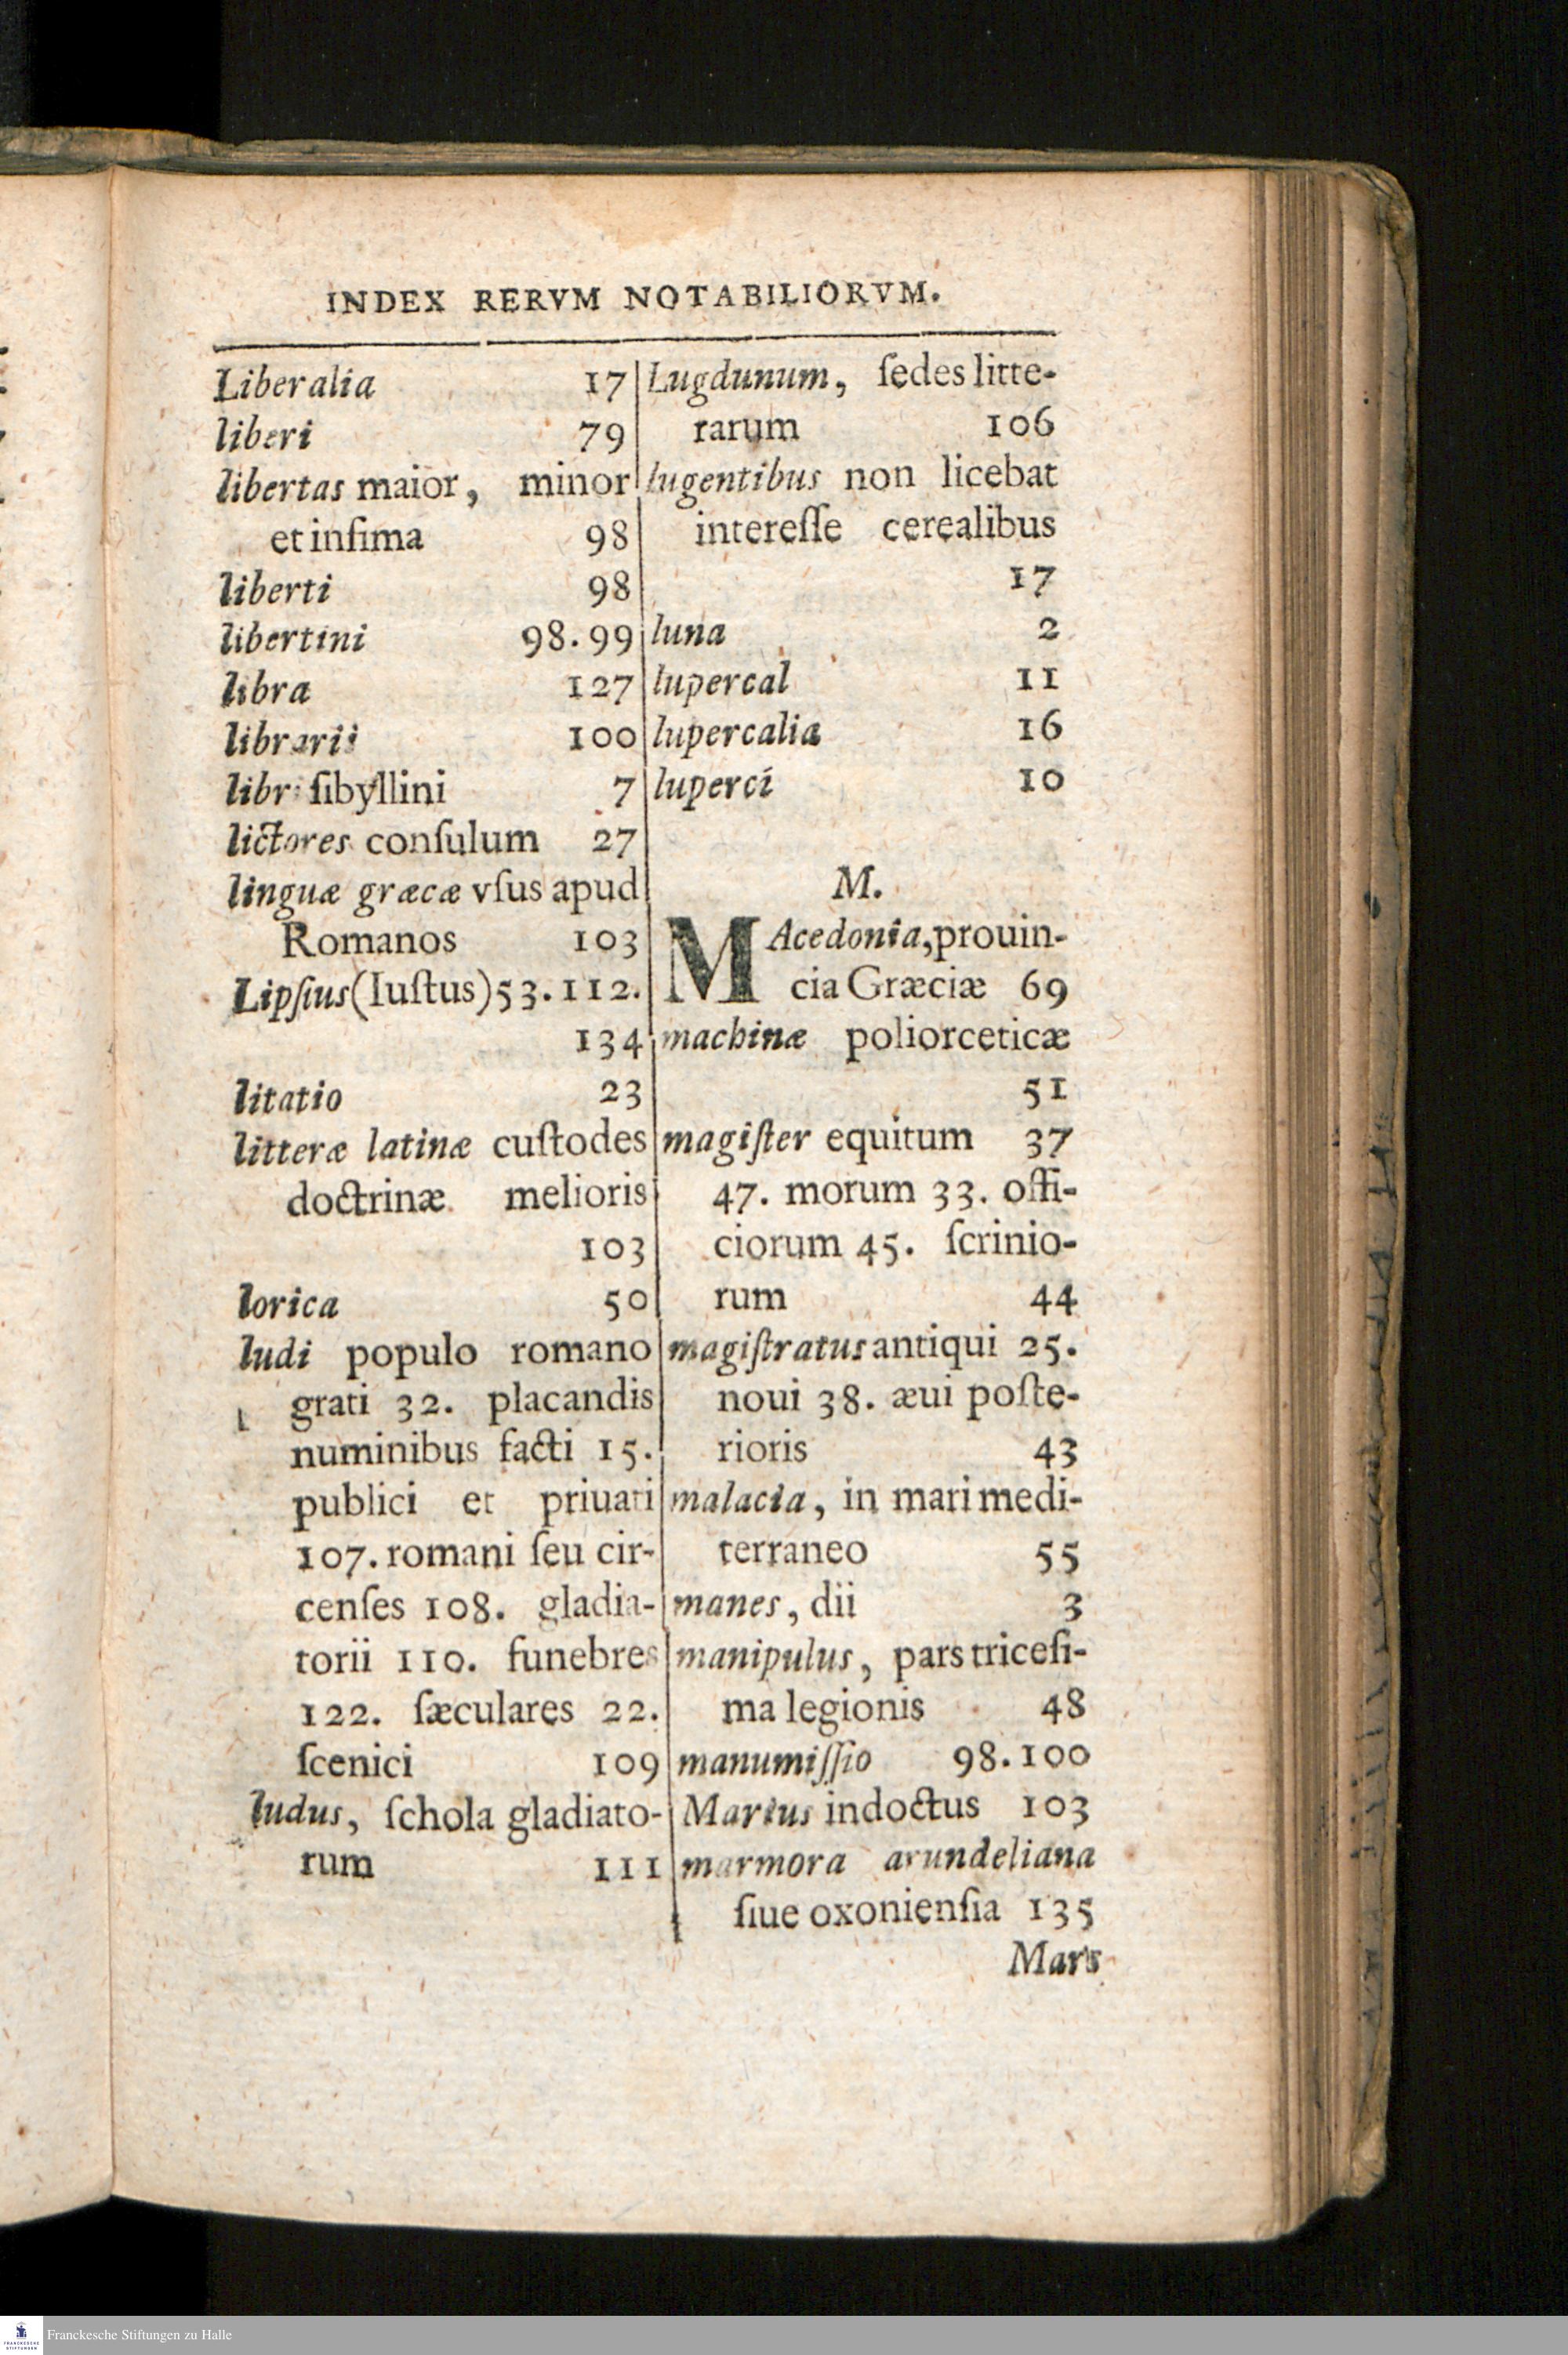 INDEX RERVM NOTABILIORVM.
Liberalia 17
liberi 79
libertas maior, minor
et infima 98
liberti 98
libertini 98. 99
libra 127
librarii 100
libri ſibyllini 7
lictores conſulum 27
linguæ græcæ vſus apud
Romanos 103
Lipſius (Iuſtus) 53. 112.
134
litatio 23
litteræ latinæ cuſtodes
doctrinæ melioris
103
lorica 50
ludi populo romano
grati 32. placandis
numinibus facti 15.
publici et priuati
107. romani ſeu cir-
cenſes 108. gladia-
torii 110. funebres
122. ſæculares 22.
ſcenici 109
ludus, ſchola gladiato-
rum 111
Lugdunum, ſedes litte-
rarum 106
lugentibus non licebat
intereſſe cerealibus
17
luna 2
lupercal 11
lupercalia 16
luperci 10
M.
MAcedonia, prouin-
cia Græciæ 69
machinæ poliorceticæ
51
magiſter equitum 37
47. morum 33. offi-
ciorum 45. ſcrinio-
rum 44
magiſtratus antiqui 25.
noui 38. æui poſte-
rioris 43
malacia, in mari medi-
terraneo 55
manes, dii 3
manipulus, pars triceſi-
ma legionis 48
manumiſſio 98. 100
Marius indoctus 103
marmora arundeliana
ſiue oxonienſia 135
Mars
FRANCKESCHE
STIFTUNGEN
Franckesche Stiftungen zu Halle